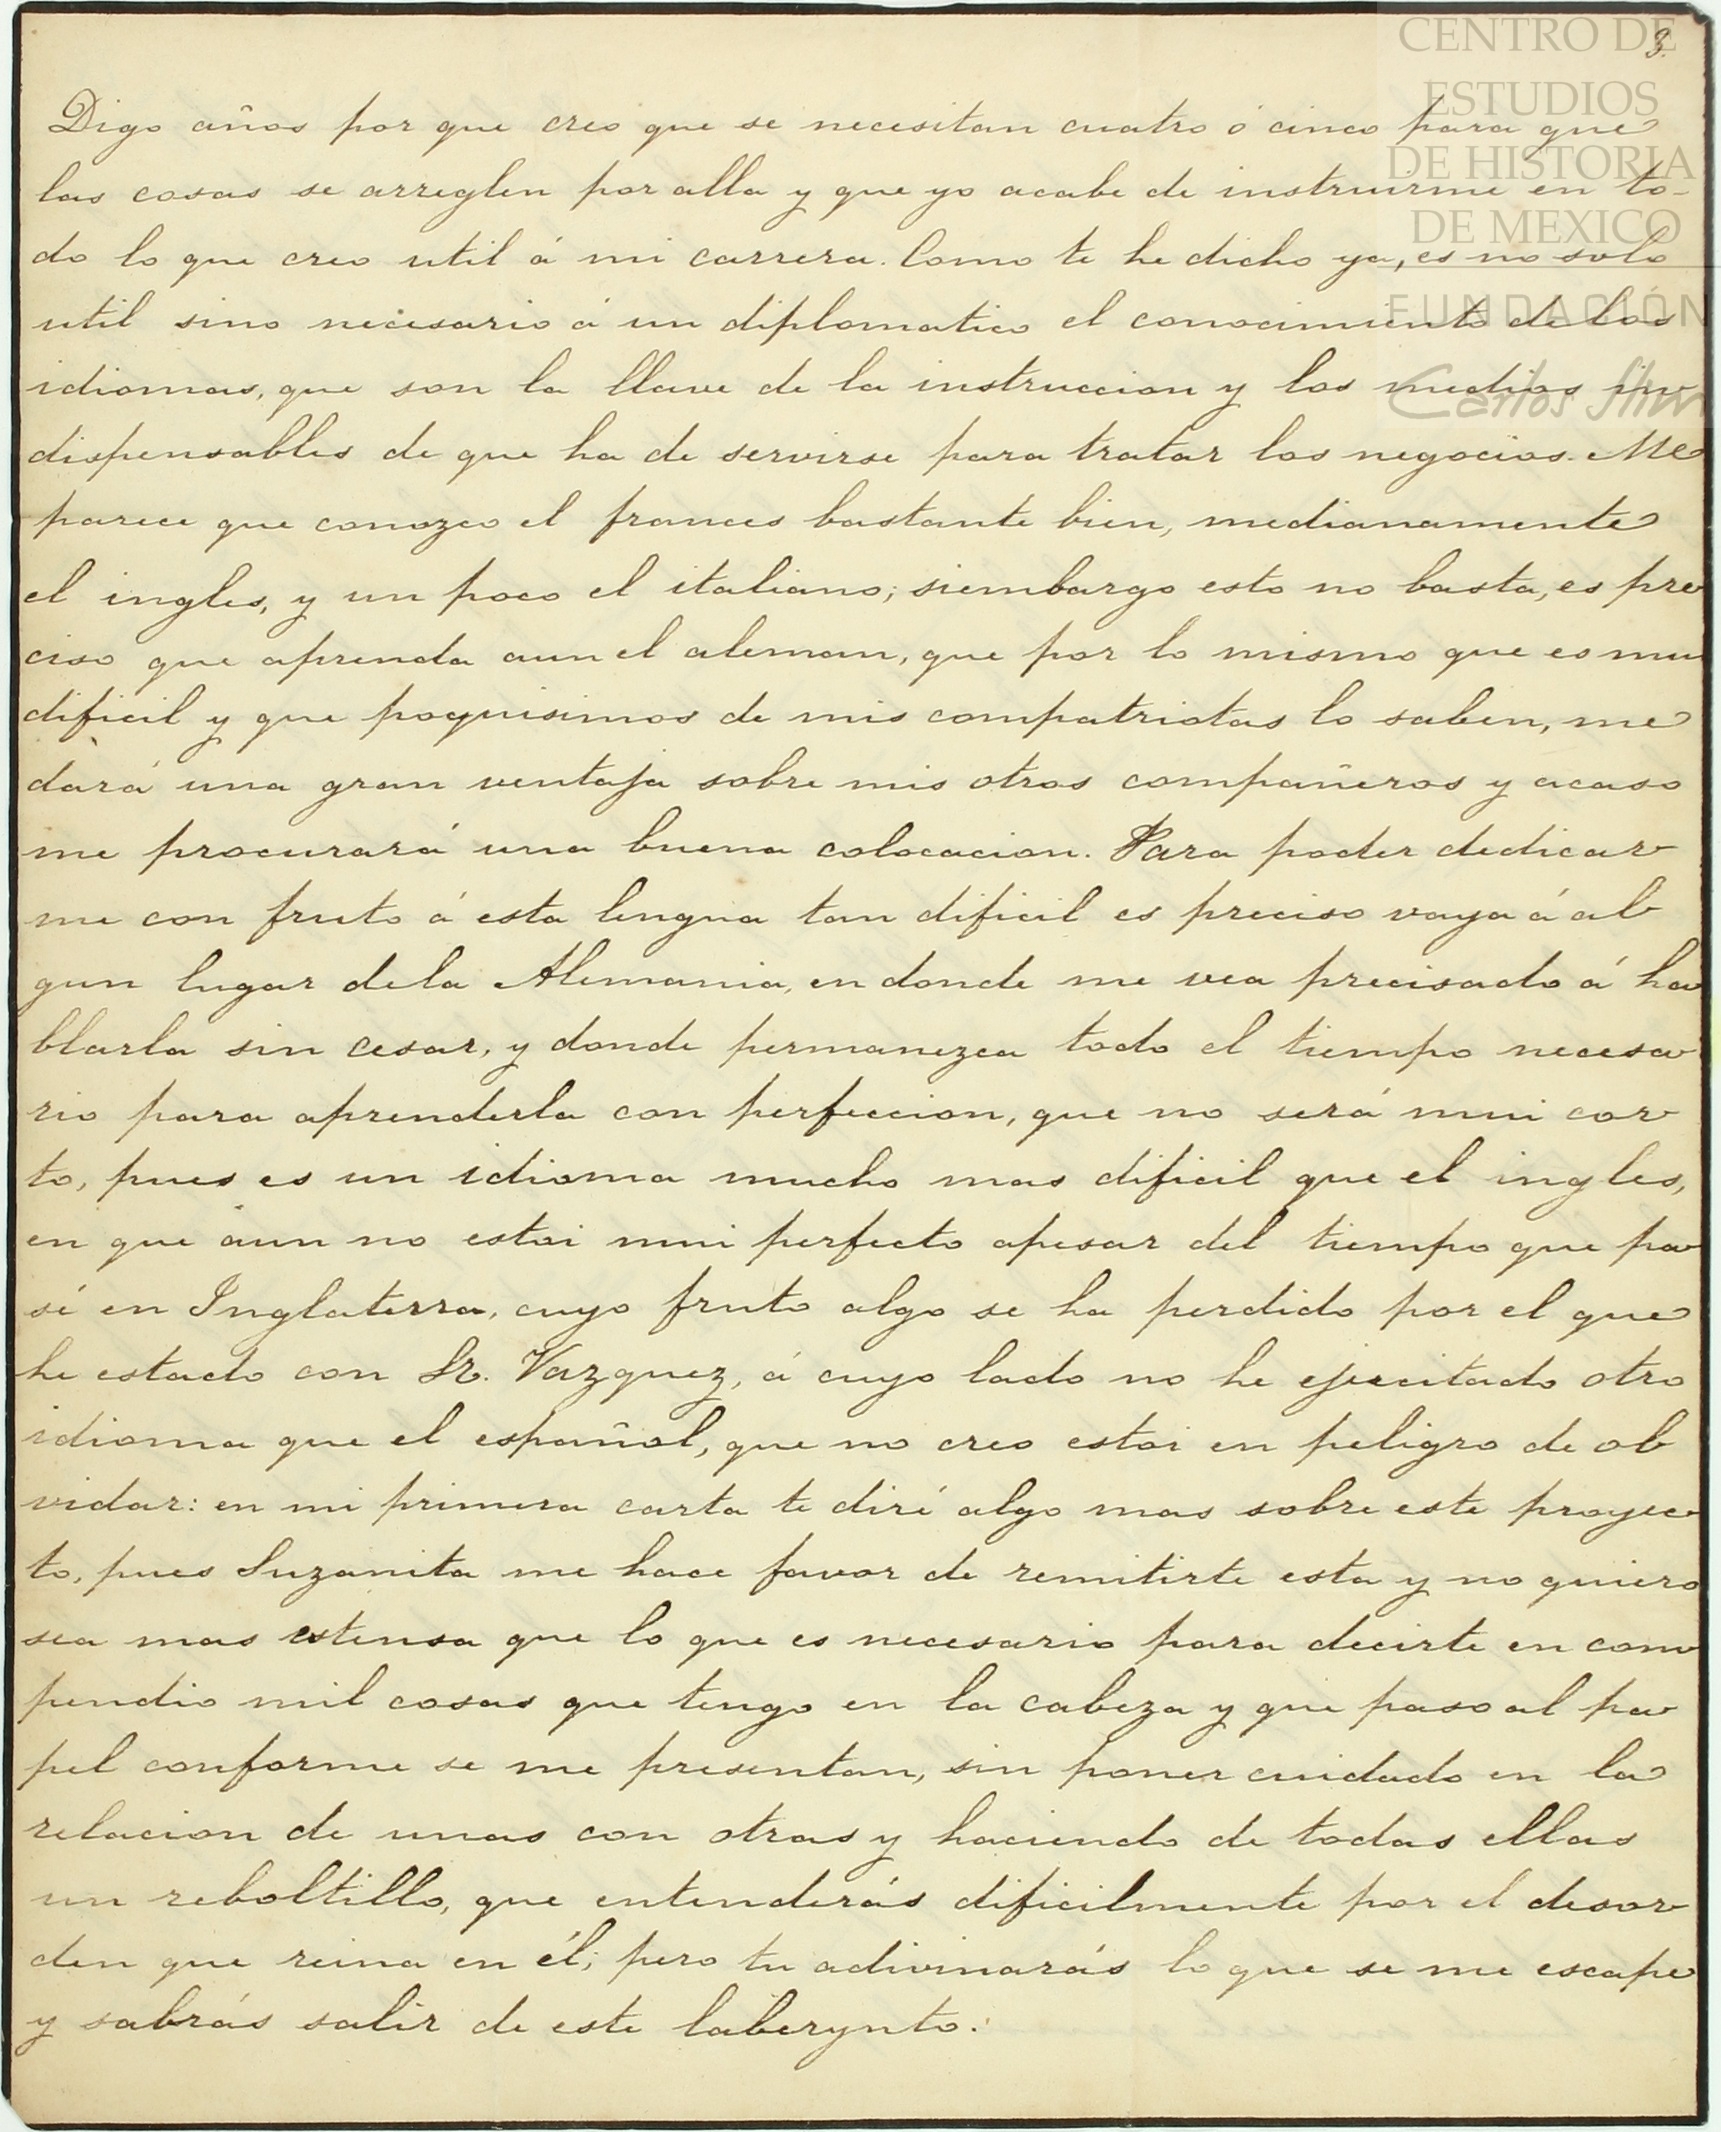 CENTRO DE
ESTUDIOS
DE HISTORIA
DE MEXICO
FUNDACIÓN
Carlos Slim
3.
Digo años por que creo que se necesitan cuatro ó cinco para que
las cosas se arreglen por alla y que yo acabe de instruirme en to-
do lo que creo util á mi carrera. Como te he dicho ya, es no solo
util sino necesario á un diplomatico el conocimiento de los
idiomas, que son la llave de la instruccion y los medios in
dispensables de que ha de servirse para tratar los negocios. Me
parece que conozco el frances bastante bien, medianamente
el ingles, y un poco el italiano; siembargo esto no basta, es pre
ciso que aprenda aun el aleman, que por lo mismo que es mui
dificil y que poquisimos de mis compatriotas lo saben, me
dará una gran ventaja sobre mis otros compañeros y acaso
me procurará una buena colocacion. Para poder dedicar
me con fruto á esta lengua tan dificil es preciso vaya á al
gun lugar dela Alemania, en donde me vea precisado á ha
blarla sin cesar, y donde permanezca todo el tiempo necesa
rio para aprenderla con perfeccion, que no será mui cor
to, pues es un idioma mucho mas dificil que el ingles,
en que aun no estoi mui perfecto apesar del tiempo que pa
sé en Inglaterra, cuyo fruto algo se ha perdido por el que
he estado con Sr. Vazquez, á cuyo lado no he ejercitado otro
idioma que el español, que no creo estoi en peligro de ol
vidar: en mi primera carta te diré algo mas sobre este proyec
to, pues Suzanita me hace favor de remitirte esta y no quiero
sea mas estensa que lo que es necesario para decirte en com
pendio mil cosas que tengo en la cabeza y que paso al pa
pel conforme se me presentan, sin poner cuidado en la
relacion de unas con otras y haciendo de todas ellas
un reboltillo, que entenderás dificilmente por el desor
den que reina en él; pero tu adivinarás lo que se me escape
y sabrás salir de este laberynto.